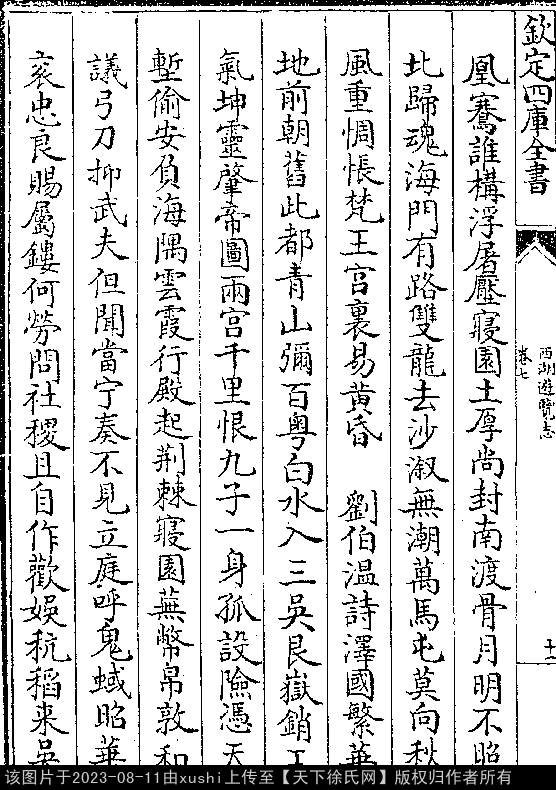 欽定四庫全書
西湖遊覽志
卷七
十二
凰騫誰構浮屠壓寝園土厚尚封南渡骨月明不照
北歸魂海門有路雙龍去沙溆無潮萬馬屯莫向秋
風重惆悵梵王宫裏易黄昏　劉伯温詩澤國繁華
地前朝舊此都青山彌百粤白水入三吳艮嶽銷王
氣坤靈肇帝圖兩宫千里恨九子一身孤設險憑天
塹偷安負海隅雲霞行殿起荆棘寝園蕪幣帛敦和
議弓刀抑武夫但聞當宁奏不見立庭呼鬼蜮昭華
衮忠良賜屬鏤何勞問社稷且自作歡娛秔稻来吳
该图片于2023-08-11由xushi上传至【天下徐氏网】版权归作者所有